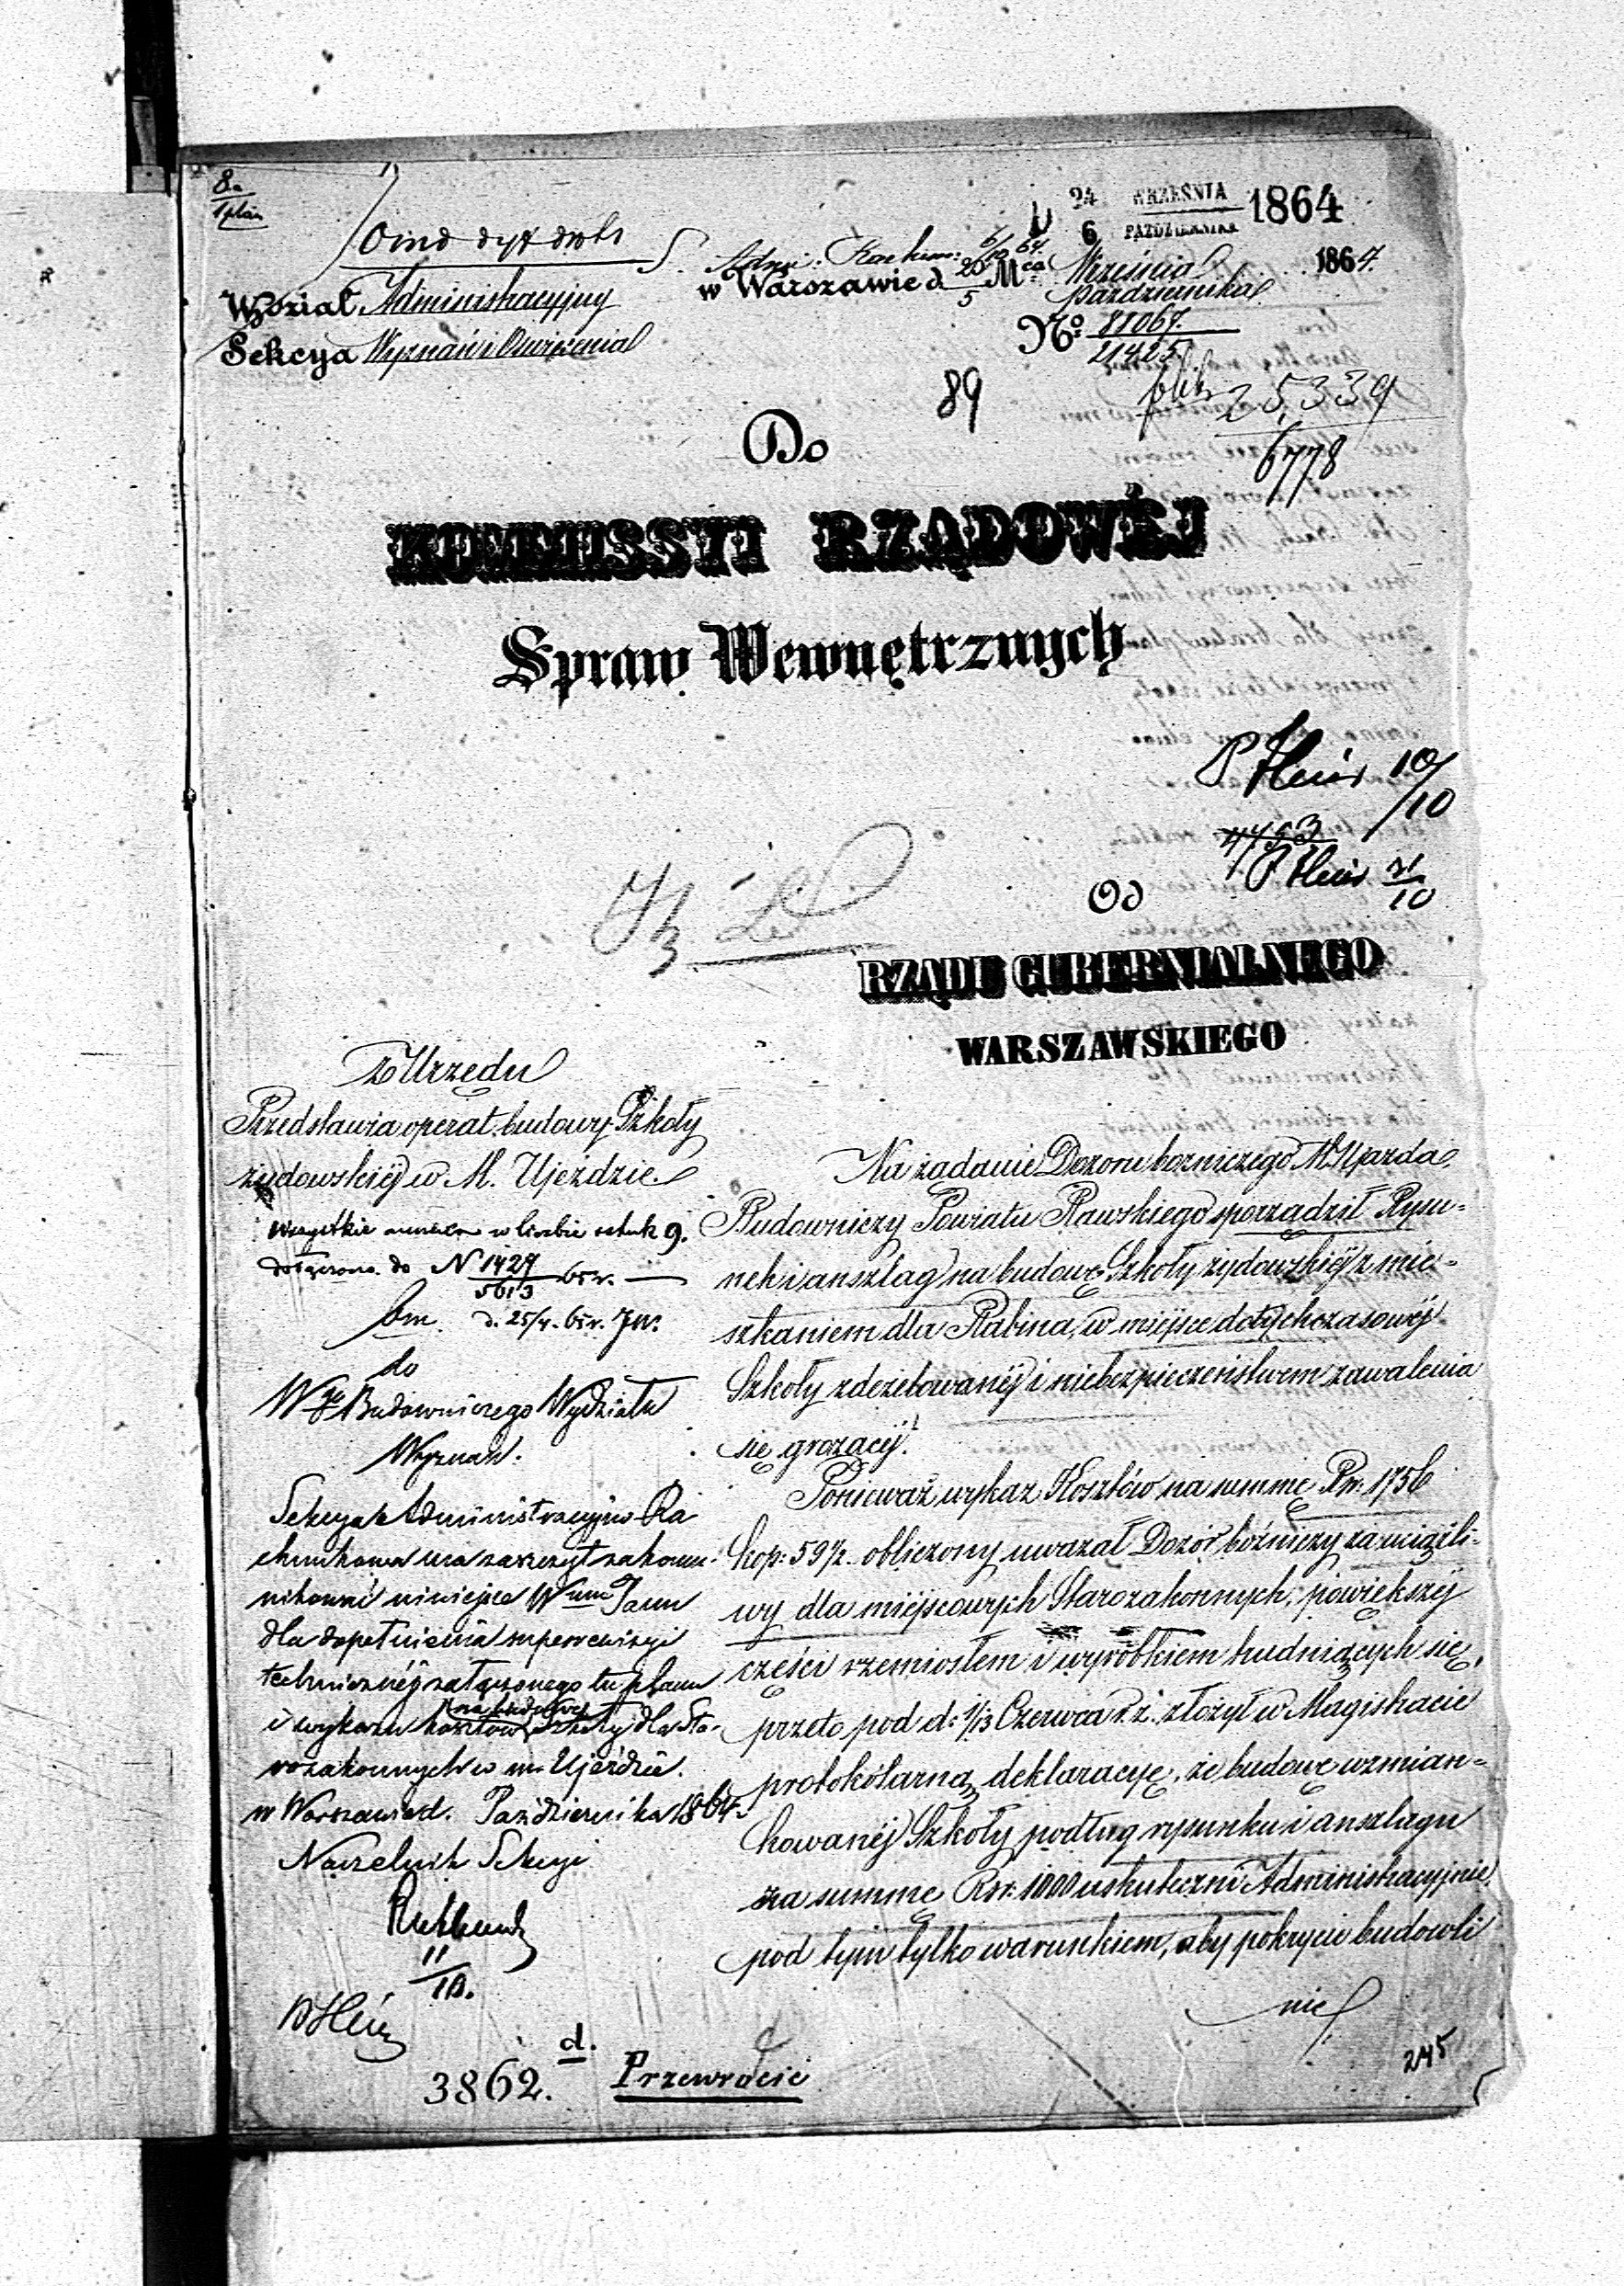 8.
1 plan
24 WRZEŚNIA 1864
6 PAŹDZIERNIKA
Wydział Administracyjny
Sekcya Wyznań i Oświecenia
w Warszawie d. 20 Mca Września 1864.
5 Października
No. 81067.
21425
89
25,339
6778
Do
KOMMISSYI RZĄDOWÉJ
Spraw Wewnętrznych
10/10
Od
21/10
RZĄDU GUBERNIALNEGO
WARSZAWSKIEGO
Z Urzędu
Przedstawia operat budowy Szkoły
żydowskiéj w M. Ujeździe.
Wszystkie w liczbie sztuk 9.
dołączono do N 1427
5613 65 r.
d. 25/4. 65 r.
do
Wgo Budowniczego Wydziału
Wyznań.
Sekcya Administracyjno Ra
chunkowa ma zaszczyt zakomu-
nikować niniejsze Wmu Panu
dla dopełnienia superrewizyi
technicznéj załączonego tu planu
i wykazu kosztów na budowę Szkoły dla Sta-
rozakonnych w m. Ujeździe.
w Warszawie d. Października 1864.
Naczelnik Sekcyi
11/10.
Na żądanie Dozoru bożniczego M. Ujazda,
Budowniczy Powiatu Rawskiego sporządził Rysu-
nek i anszlag na budowę Szkoły żydowskiéj z mie-
szkaniem dla Rabina, w miejsce dotychczasowéj
Szkoły zdezelowanéj i niebezpieczeństwem zawalenia
się grożącéj.
Ponieważ wykaz Kosztów na summę Rsr. 1756
kop: 59 1/2 obliczony uważał Dozór bóżniczy za uciążli-
wy dla miéjscowych Starozakonnych, powiększéj
części rzemiosłem i wyrobkiem trudniących się,
przeto pod d: 1/13 Czerwca r. z. złożył w Magistracie
protokólarną deklaracyę, że budowę wzmian-
kowanéj Szkoły podług rysunku i anszlagu
za summę Rsr: 1000 uskuteczni Administracyjnie,
pod tym tylko warunkiem, aby pokrycie budowli
nie
245
3862. d.
Przewrócić